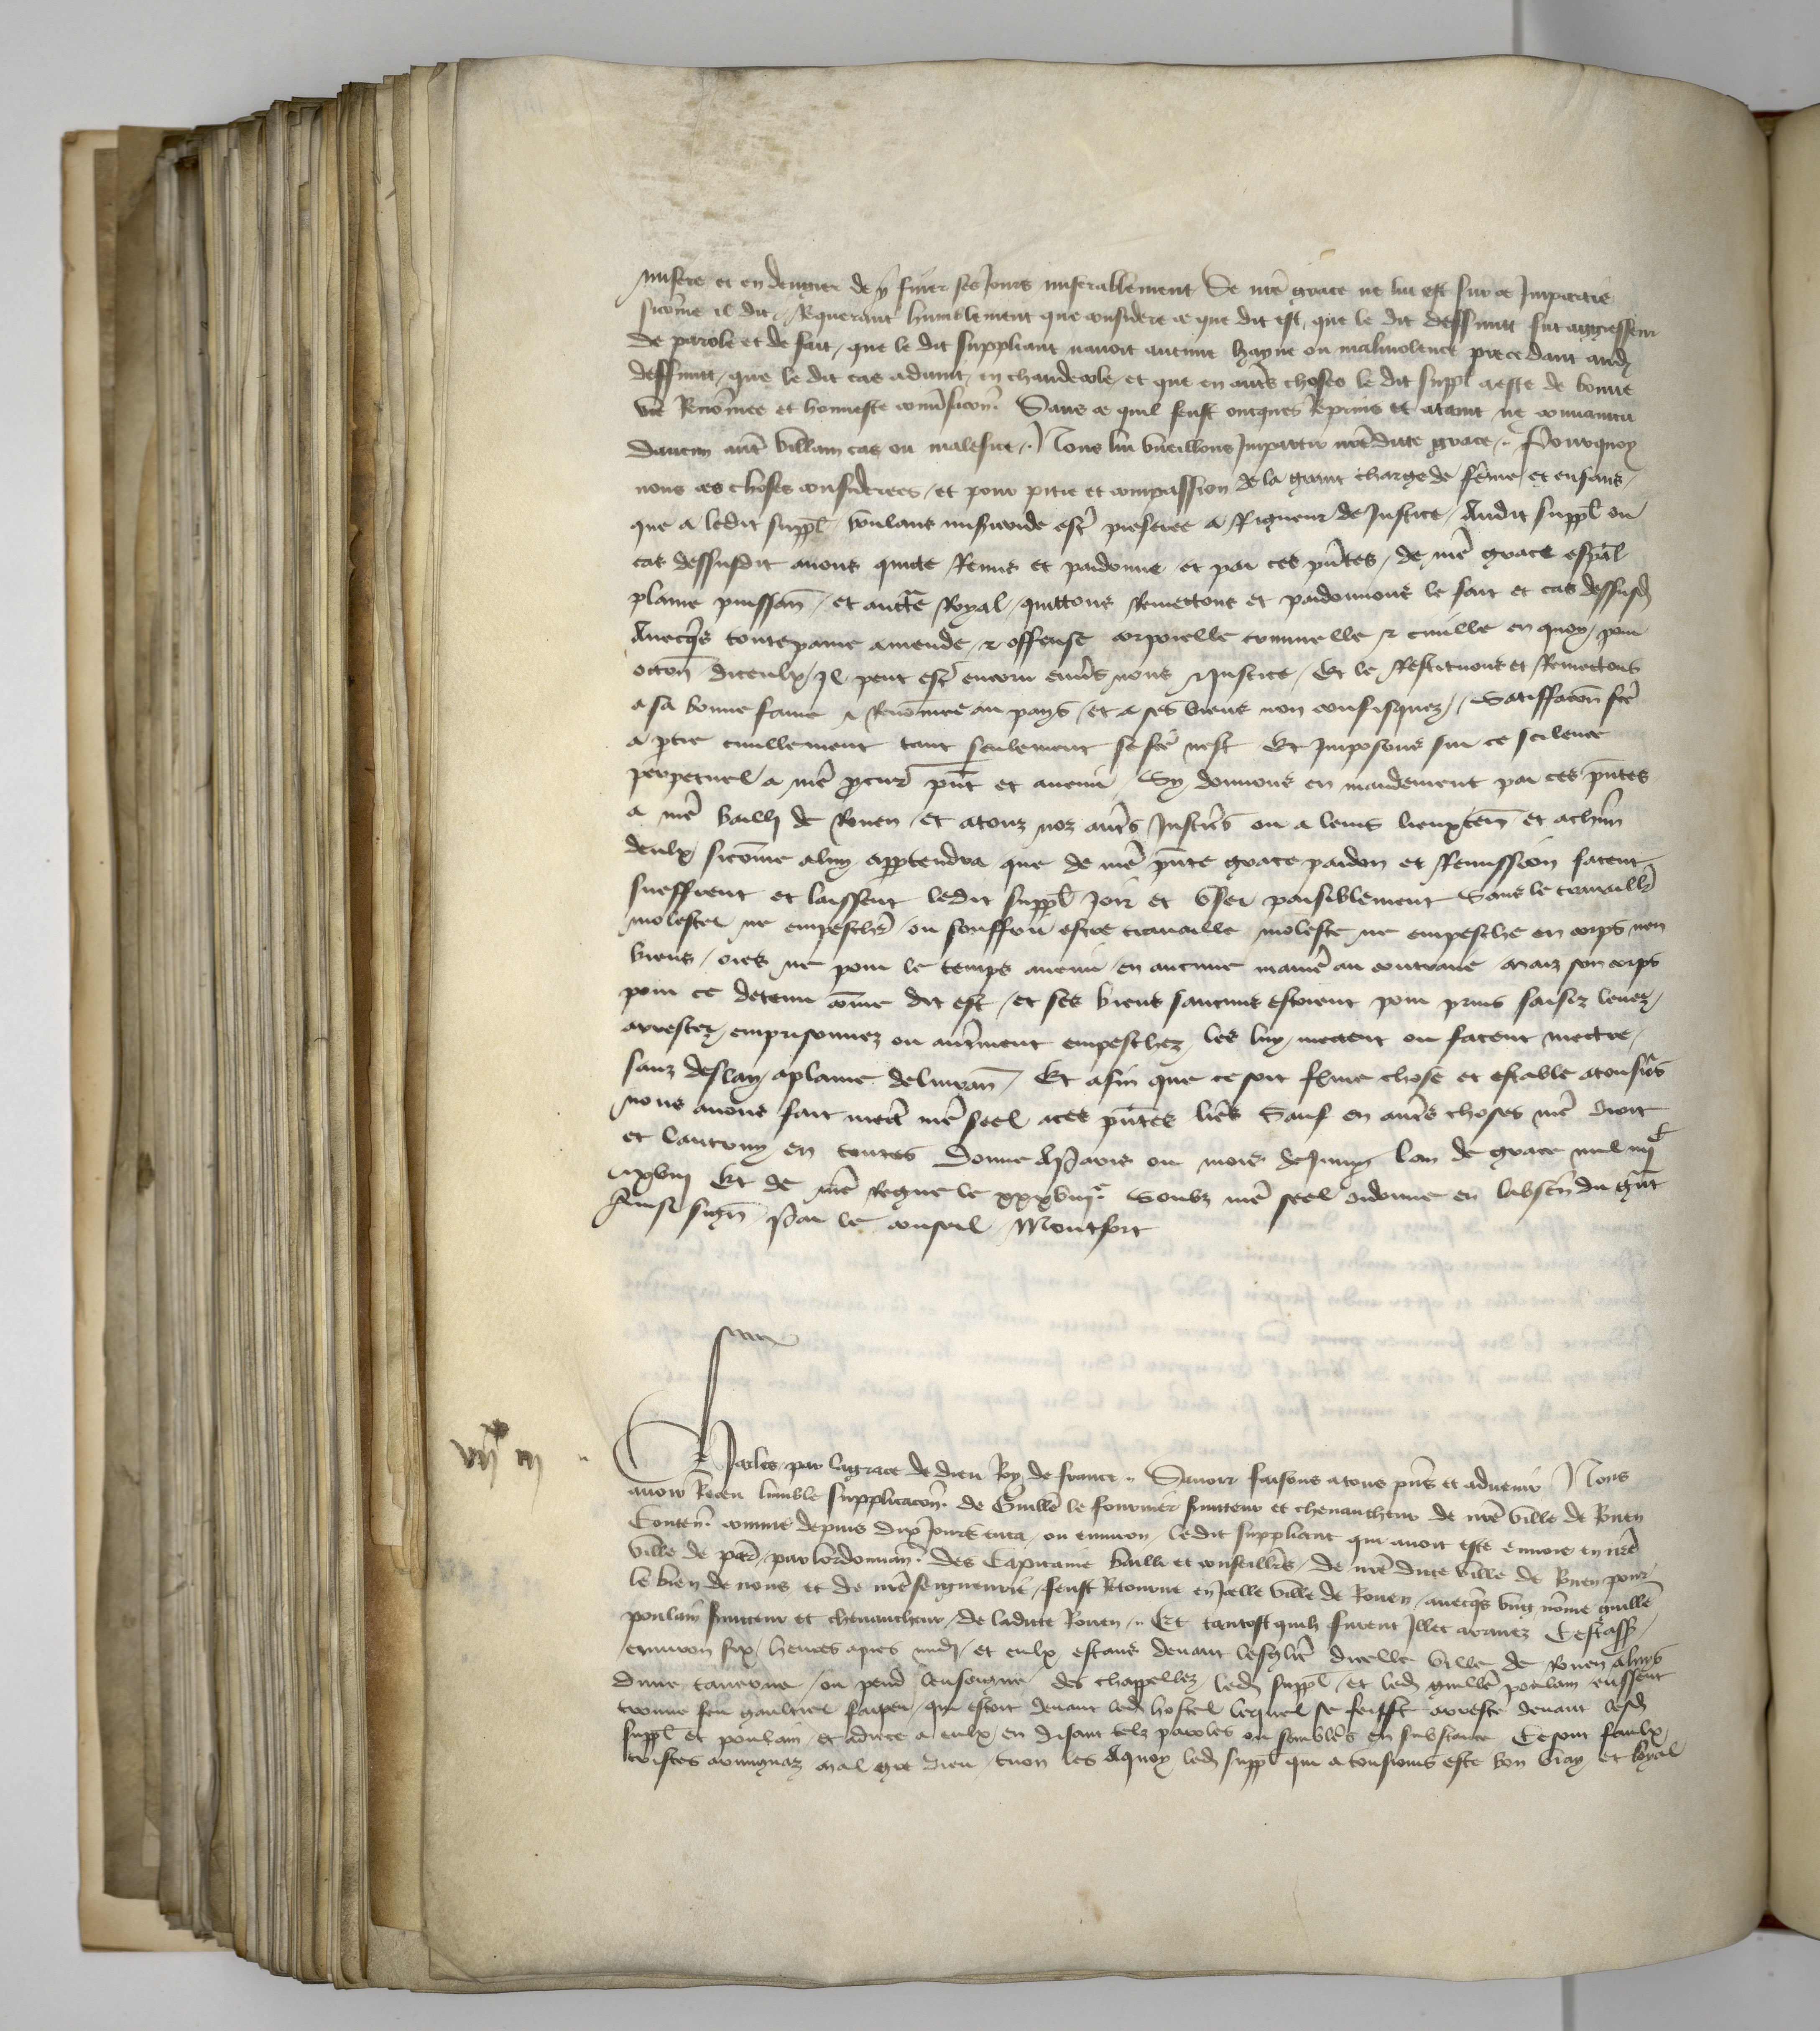 misere et en dengier de y finer ses jours miserablement Se nre grace ne lui est sur ce Impartie
sicome il dit Requerant humblement que considere ce que dit est, que le dit deffunct fut aggresseur
de parole et de fait, que le dit suppliant navoit aucune hayne ou malivolence precedant aud
deffunct, que le dit cas advint en chaudecole, et que en autrs choses le dit suppl a este de bonne
vie Renomee et honneste convsacon Sans ce quil feust oncques Reprins et ataint ne convaincu
daucun autre villain cas ou malefice Nous lui vueillons Impartir nre dicte grace Pourquoy
nous ces choses considerees, et pour pitie et compassion de la grant charge de feme et enfans,
que a ledit suppl voulans misericorde estre preferee a Rigueur de Justice, Audit suppl ou
cas dessusdit avons quicte Remis et pardonne et par ces pntes, de nre grace espal
plaine puissan, et auctte Royal, quittons Remettons et pardonnons le fait et cas dessusd
Avecqs toute paine amende, et offense corporelle criminelle et civille en quoy, pour
occon diceulx, Il peut estre encoru envrs nous et Justice, Et le Restituons et Remettons
a sa bonne fame et Renomee au pays, et a ses biens non confisquez, Satisffacon fce
a ptie civillement tant seulement se fce nest Et Imposons sur ce scilence
perpetuel a nre pcur pnt et avenir Sy donnons en mandement par ces pntes
a nre bailli de Rouen, et a touz noz autrs Justicrs ou a leurs lieuxten et a chun
deulx sicomme a luy apptendra que de nre pnte grace pardon et Remission facent
sueffrent et laissent ledit suppl Joir et User paisiblement Sans le travaillr
molester ne empeschr, ou souffrir estre travaille moleste ne empesche en corps nen
biens, ores ne pour le temps avenir, en aucune maniere au contraire Maiz son corps
pour ce detenu come dit est, et ses biens saucuns estoient pour prins saisiz levez,
arrestez, emprisonnez ou autrment empeschez, les luy mettent ou facent mettre,
sanz deslay a plaine delivran, Et afin que ce soit ferme chose et estable a tousjrs
nous avons fait mettre nre seel a ces pntes lres Sauf en autrs choses nre droit
et lautruy en toutes Donne a Paris ou mois de Juing lan de grace mil iiijc
xviij Et de nre Regne le xxxviije Soubz nre seel ordonne en labsen du grat
Ainsi sign Par le conseil Montfort
Charles par la grace de dieu Roy de france Savoir faisons a tous pns et advenir Nous
avoir Receu lumble supplicacon de Guille le fournier sunteur et chevaucheur de nre ville de Rouen
Conten comme depuis dix Jours enca, ou environ, ledit suppliant qui avoit este envoie en nre
ville de par, par lordonnan des Capitaine bailli et conseillrs, de nre dicte ville de Rouen pour
le bien de nous et de nre seigneurie, feust Retourne en Icelle ville de Rouen, avecqs ung nome guille
poulain sunteur et chevaucheur, de laditte Rouen Et tantost quilz furent Illec arrivez Cestass,
environ six, heures apres midi, et eulx estans devant dicelle ville de Rouen
dune taverne, ou pend lenseigne des chappellez led suppl, et led guille poulain eussent
trouve feu gaultier qui estoit devant led hostel lequel se feusst arreste devant lesd
suppl et poulain, et adrece a eulx, en disant telz paroles ou semblebls en substance Ce sont faulx
tristes arminaz mal gre dieu, tuon les Aquoy led suppl qui a tousjours este bon vray et loyal